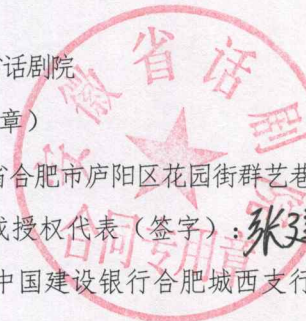 话剧院
章）
省合肥市庐阳区花园街群艺巷
或授权代表（签字）：张
中国建设银行合肥城西支行
安徽省话剧院
合同专用章